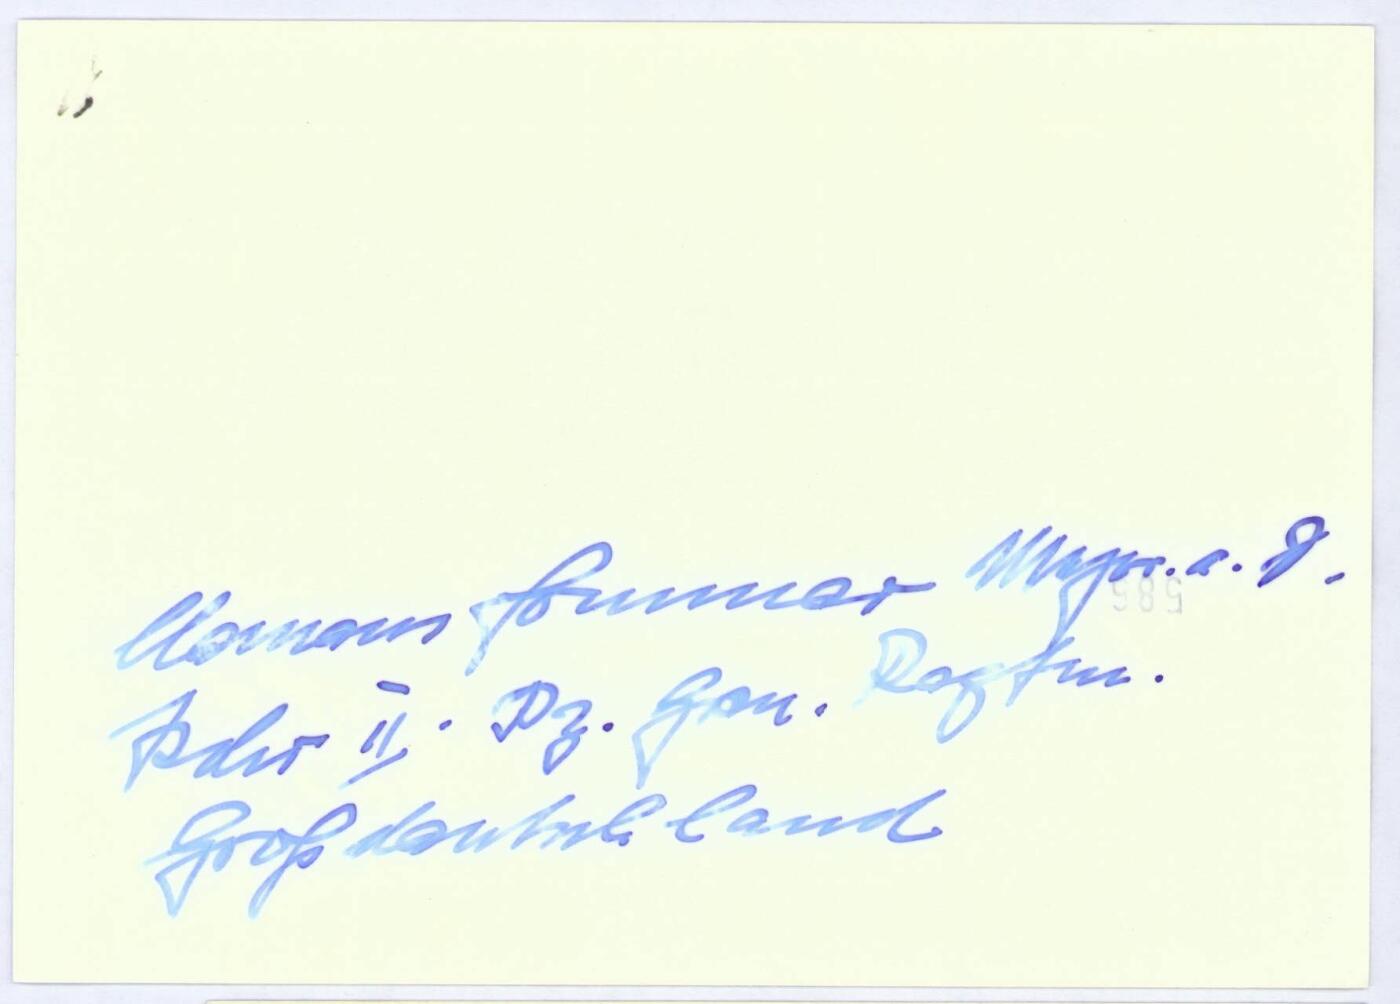 Clemens Sommer Major. a. D.
Kdr II. Pz. Gren. Regtm.
Großdeutschland
586